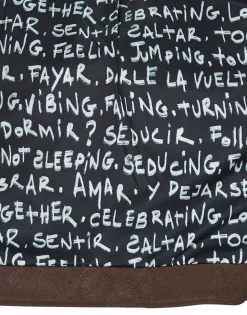 OGETHER, CELEBRATING, LO
TAR, SENTIR, SALTAR, TO
TING, FEELING, JUMPING, TOU
FAYAR, DARLE LA VUELT
G, VIBING, FAILING, TURNIN
DORMIR? SEDUCIR, Foll
NOT SLEEPING, SEDUCING, FU
BRAR, AMAR Y DEJARSE
OGETHER, CELEBRATING, LO
SENTIR, SALTAR, TO
FEELING, JUMPING, TO